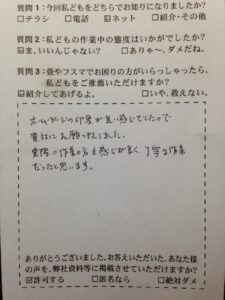 質問1:今回私どもをどちらでお知りになりましたか?
□チラシ □電話 ☑ネット □紹介・その他
質問2:私どもの作業中の態度はいかがでしたか?
☑ま、いいんじゃない? □ありゃ~、ダメだね。
質問3:畳やフスマでお困りの方がいらっしゃったら、
私どもをご推薦いただけますか?
☑紹介してあげるよ。 □いや、教えない。
ホームページの印象が良い感じでしたので
貴社にお願い致しました。
実際の作業の方も感じが良く、丁寧な作業
だったと思います。
ありがとうございました。お答えいただいた、あなた様
の声を、弊社資料等に掲載させていただけますか?
☑許可する □匿名なら □絶対ダメ